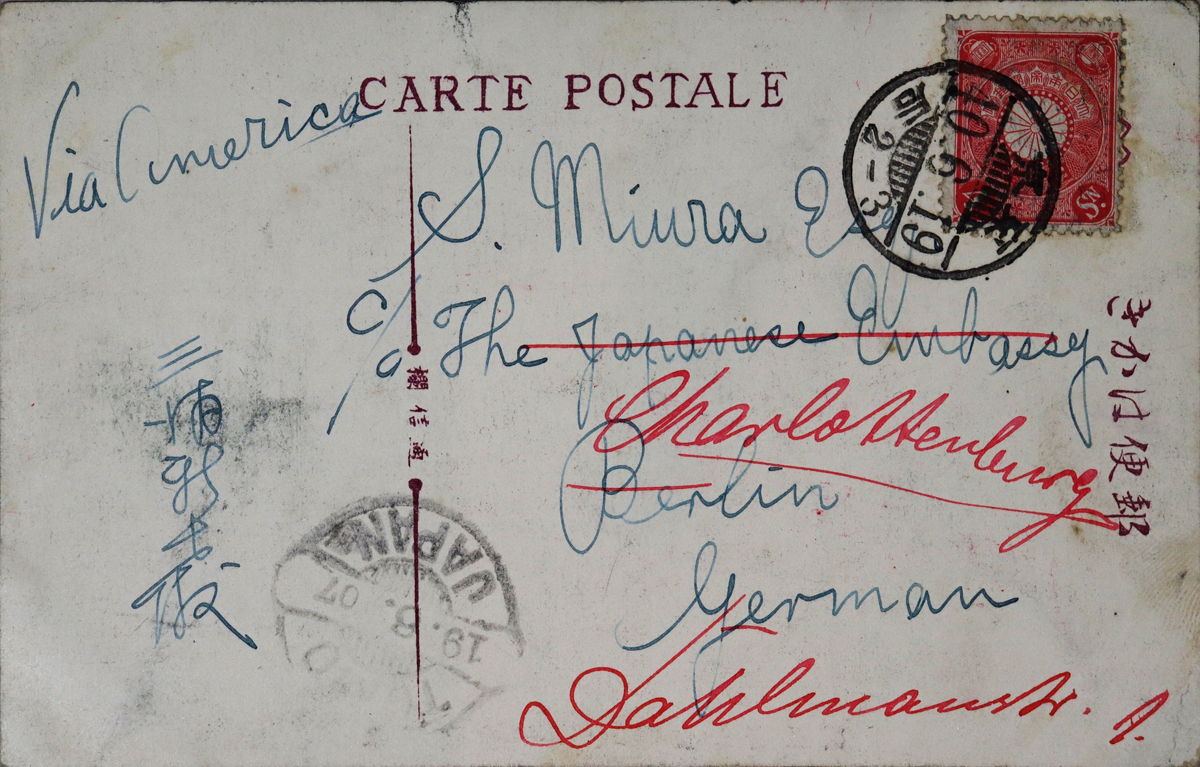 CARTE POSTALE
Via America
S. Miura Esq
C/o The Japanese Embassy
Charlottenburg
Berlin
German
Dahlmannstr. 1.
郵便はかき
通信欄
三浦新七殿
東京
40.6.19
2-3
JAPAN
19.6.07